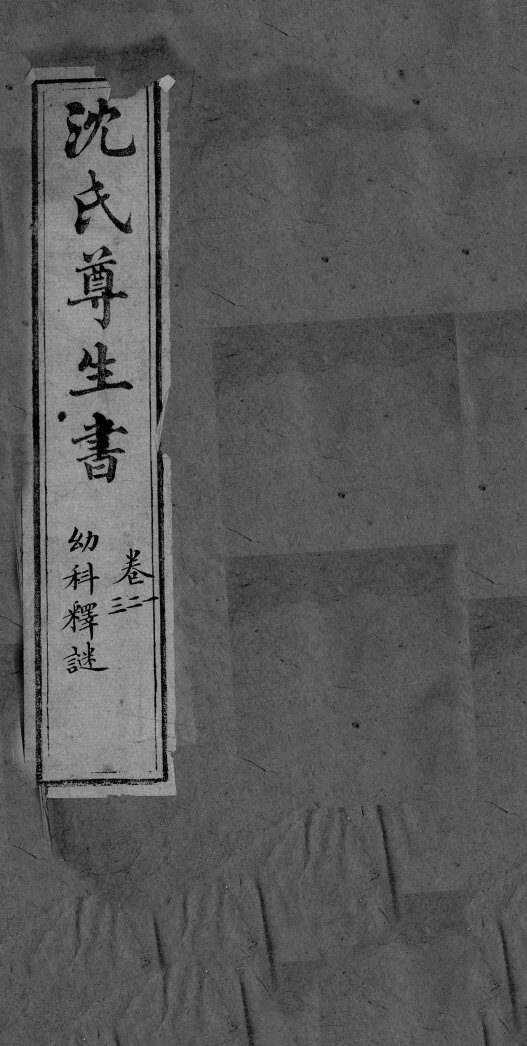 沈氏尊生書
卷一二三
幼科釋謎